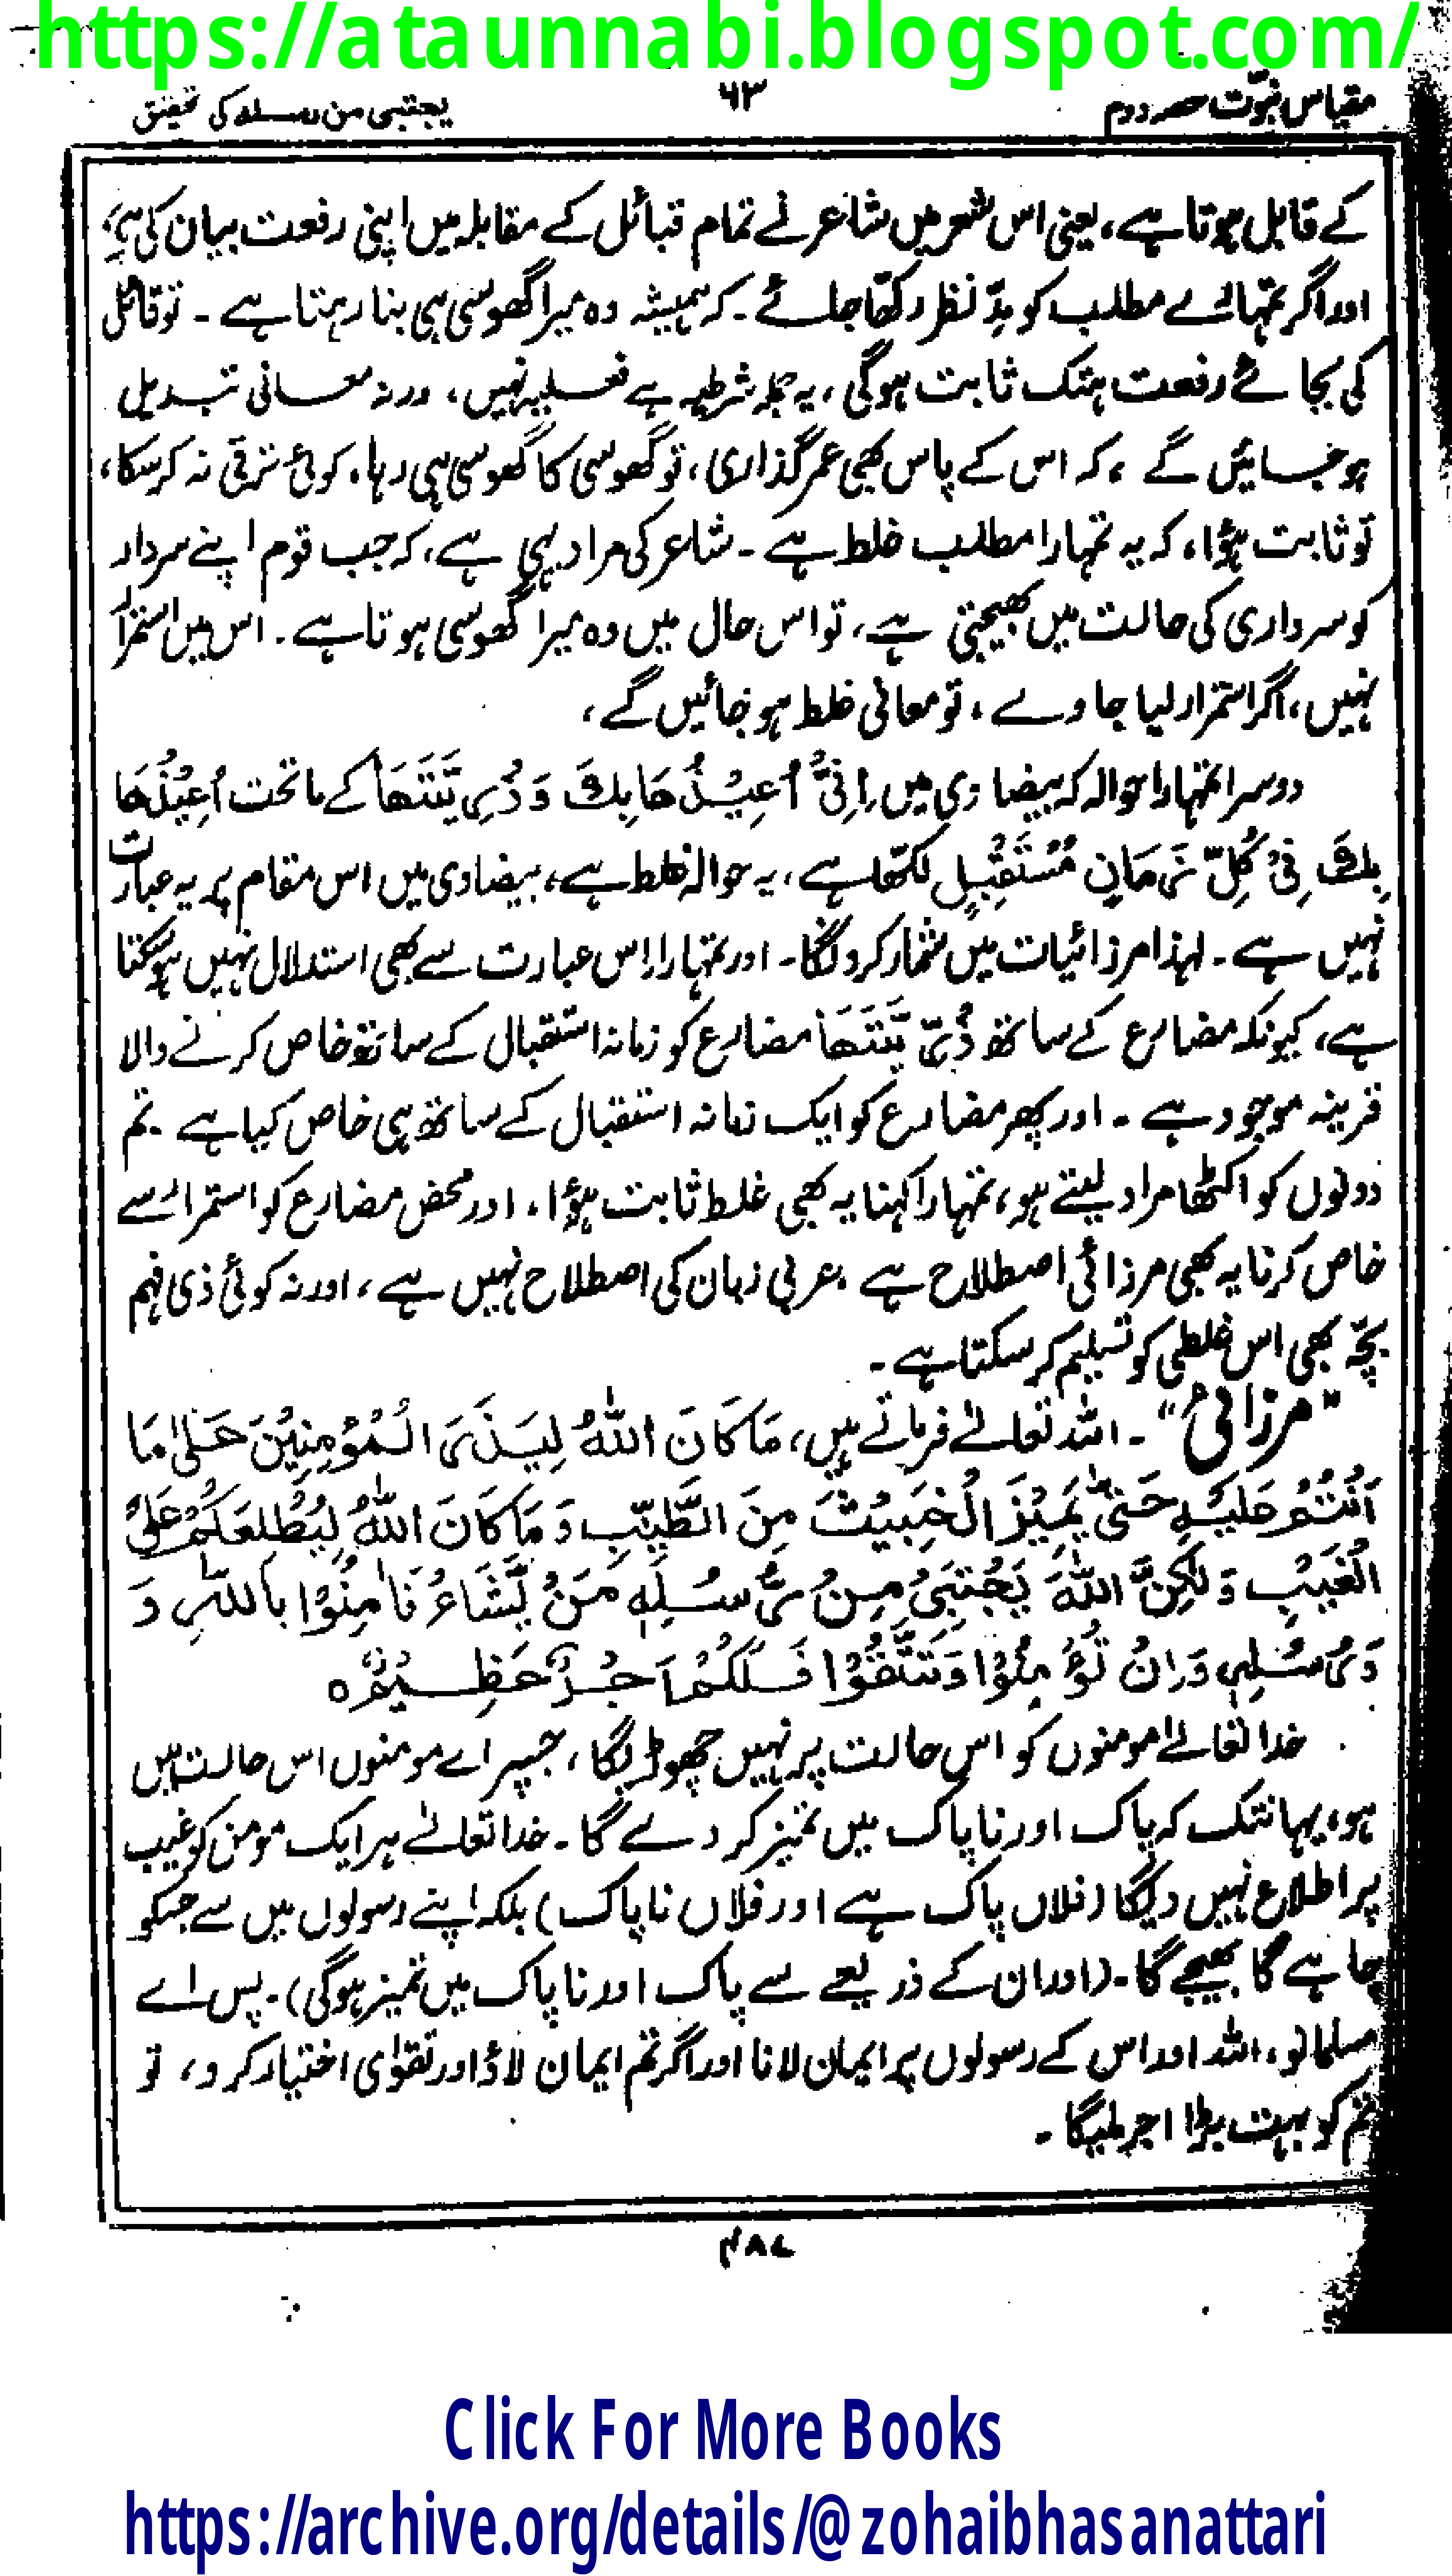 https://ataunnabi.blogspot.com/
مقیاس نبوّت حصہ دوم
۶۳
یجتبی من رسلہ کی تحقیق
کے قابل ہوتا ہے، یعنی اس شعر میں شاعر نے تمام قبائل کے مقابلہ میں اپنی رفعت بیان کی ہے،
اور اگر تمہارے مطلب کو مدِّ نظر رکھا جائے۔ کہ ہمیشہ وہ میرا گھوسی ہی بنا رہتا ہے۔ تو قائل
کی بجائے رفعت ہتک ثابت ہوگی، یہ جملہ شرطیہ ہے فعلیہ نہیں، ورنہ معانی تبدیل
ہو جائیں گے، کہ اس کے پاس بھی عمر گذاری، تو گھوسی کا گھوسی ہی رہا، کوئی ترقی نہ کر سکا،
تو ثابت ہؤا، کہ یہ تمہارا مطلب غلط ہے۔ شاعر کی مراد یہی ہے، کہ جب قوم اپنے سردار
کو سرداری کی حالت میں بھیجتی ہے، تو اس حال میں وہ میرا گھوسی ہوتا ہے۔ اس میں استمرار
نہیں، اگر استمرار لیا جاوے، تو معانی غلط ہو جائیں گے،
دوسرا تمہارا حوالہ کہ بیضاوی میں اِنِّیْ اُعِیْذُ هَا بِكَ وَ ذُرِّیَّتَهَا کے ماتحت اُعِیْذُهَا
بِكَ فِیْ كُلِّ زَمَانٍ مُسْتَقْبِلٍ لکھا ہے، یہ حوالہ غلط ہے، بیضاوی میں اس مقام پر یہ عبارت
نہیں ہے۔ لہذا مرزائیات میں شمار کرونگا۔ اور تمہارا اِس عبارت سے بھی استدلال نہیں ہوسکتا
ہے، کیونکہ مضارع کے ساتھ ذُرِّیَّتَهَا مضارع کو زمانہ استقبال کے ساتھ خاص کرنے والا
قرینہ موجود ہے۔ اور پھر مضارع کو ایک زمانہ استقبال کے ساتھ ہی خاص کیا ہے۔ تم
دونوں کو اکٹھا مراد لیتے ہو، تمہارا کہنا یہ بھی غلط ثابت ہؤا، اور محض مضارع کو استمرار سے
خاص کرنا یہ بھی مرزائی اصطلاح ہے۔ عربی زبان کی اصطلاح نہیں ہے، اور نہ کوئی ذی فہم
بچّہ بھی اس غلطی کو تسلیم کر سکتا ہے۔
”مرزائی“۔ اللہ تعالےٰ فرماتے ہیں، مَا كَانَ اللّٰهُ لِیَذَرَ الْمُؤْمِنِیْنَ عَلٰی مَا
اَنْتُمْ عَلَیْهِ حَتّٰی یَمِیْزَ الْخَبِیْثَ مِنَ الطَّیِّبِ وَ مَا كَانَ اللّٰهُ لِیُطْلِعَكُمْ عَلَی
الْغَیْبِ وَ لٰكِنَّ اللّٰهَ یَجْتَبِیْ مِنْ رُّسُلِهٖ مَنْ یَّشَاءُ فَاٰمِنُوْا بِاللّٰهِ وَ
رُسُلِهٖ وَ اِنْ تُؤْمِنُوْا وَ تَتَّقُوْا فَلَكُمْ اَجْرٌ عَظِیْمٌ ه
خدا تعالےٰ مومنوں کو اس حالت پر نہیں چھوڑیگا، جسپر اے مومنوں اس حالت میں
ہو، یہانتک کہ پاک اور ناپاک میں تمیز کر دے گا۔ خدا تعالےٰ ہر ایک مومن کو غیب
پر اطلاع نہیں دیگا (فلاں پاک ہے اور فلاں ناپاک) بلکہ اپنے رسولوں میں سے جسکو
چاہے گا بھیجے گا۔ (اور ان کے ذریعے سے پاک اور ناپاک میں تمیز ہوگی)۔ پس اے
مسلمانو، اللہ اور اس کے رسولوں پر ایمان لانا اور اگر تم ایمان لاؤ اور تقوٰی اختیار کرو، تو
تم کو بہت بڑا اجر ملیگا۔
۴۸۷
Click For More Books
https://archive.org/details/@zohaibhasanattari